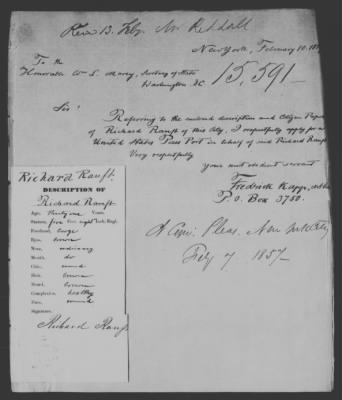 Recd 13. Feby Mr Reddall
New York, February 10. 185
To the
Honorable W. L. Marcy, Secretary of State
Washington DC
15,591-
Sir!
Referring to the enclosed description and Citizen Paper
of Richard Ranft of this City, I respectfully apply for a
United States Pass Port in behalf of said Richard Ranft
Very respectfully
Your most obedient servant
Fredrick Kapp,
P. O. Box 3750.
Richard Ranft.
DESCRIPTION OF
Richard Ranft
Age, Thirty one Years.
Stature, five feet eight Inch. Engl.
Forehead, large
Eyes, brown
Nose, ordinary
Mouth, do
Chin, round
Hair, brown
Beard, brown
Complexion, healthy
Face, round
Signature,
Richard Ranft
Com: Pleas. New York City
1857-